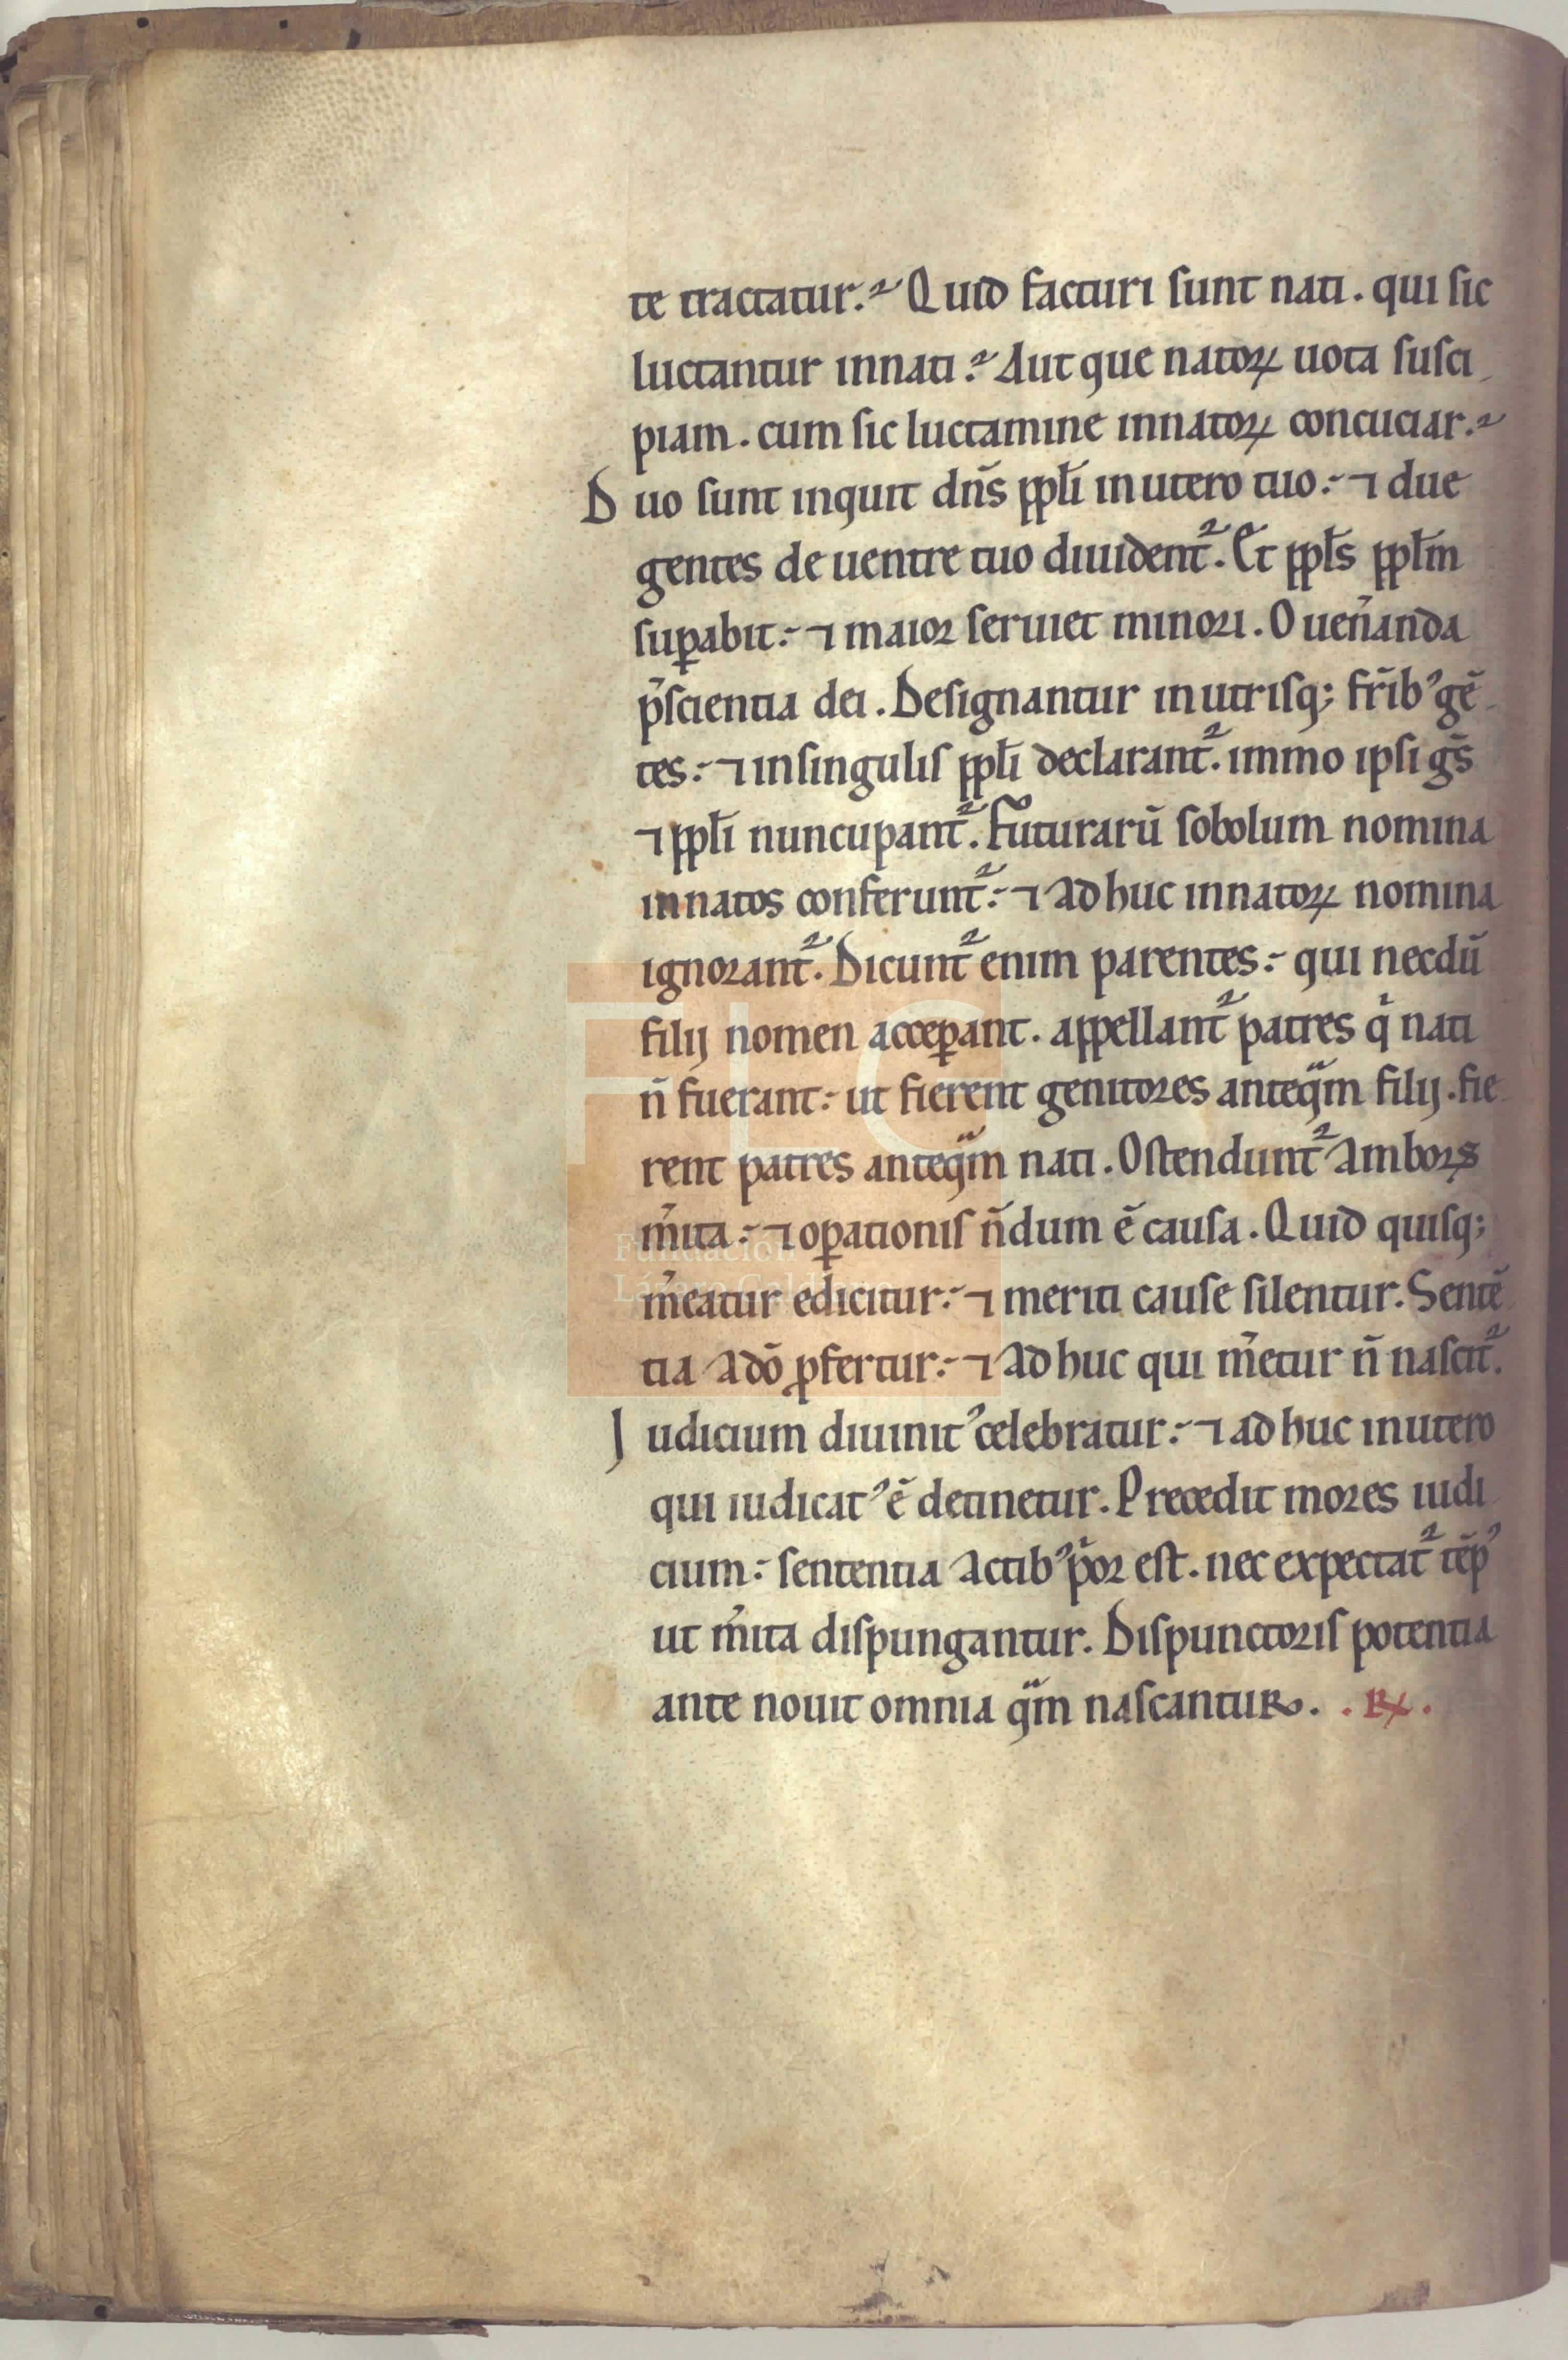 te tractatur.² Quid facturi sunt nati. qui sic
luctantur innati.² Aut que natoꝝ uota susci
piam. cum sic luctamine innatoꝝ concuciar.²
Duo sunt inquit dn̄s ppl̄i in utero tuo: ⁊ due
gentes de uentre tuo diuident᷑. Et ppl̄s ppl̄m
suꝑabit: ⁊ maior seruiet minori. O uen̄anda
p̄scientia dei. Designantur in utrisq; fr̄ib᾽ gē
tes: ⁊ in singulis ppl̄i declarant᷑. immo ipsi gs̄
⁊ ppl̄i nuncupant᷑. Futurarū sobolum nomina
in natos conferunt᷑: ⁊ ad huc innatoꝝ nomina
ignorant᷑. Dicunt᷑ enim parentes: qui necdū
filij nomen acceꝑant. appellant᷑ patres qͥ nati
n̄ fuerant: ut fierent genitores anteqᷓm filij. fie
rent patres anteqᷓm nati. Ostendunt᷑ amboꝝs
m̄ita: ⁊ oꝑationis n̄dum ē causa. Quid quisq;
m̄eatur edicitur: ⁊ meriti cause silentur. Sentē
tia a dō ꝓfertur: ⁊ ad huc qui m̄etur n̄ nascit᷑.
Iudicium diuinit᾽ celebratur: ⁊ ad huc in utero
qui iudicat᾽ ē detinetur. Precedit mores iudi
cium: sententia actib᾽ pͥor est. nec expectat᷑ tēp᾽
ut m̄ita dispungantur. Dispunctoris potentia
ante nouit omnia qᷓm nascantur. .R̸.
FLG
Fundación
Lázaro Galdiano